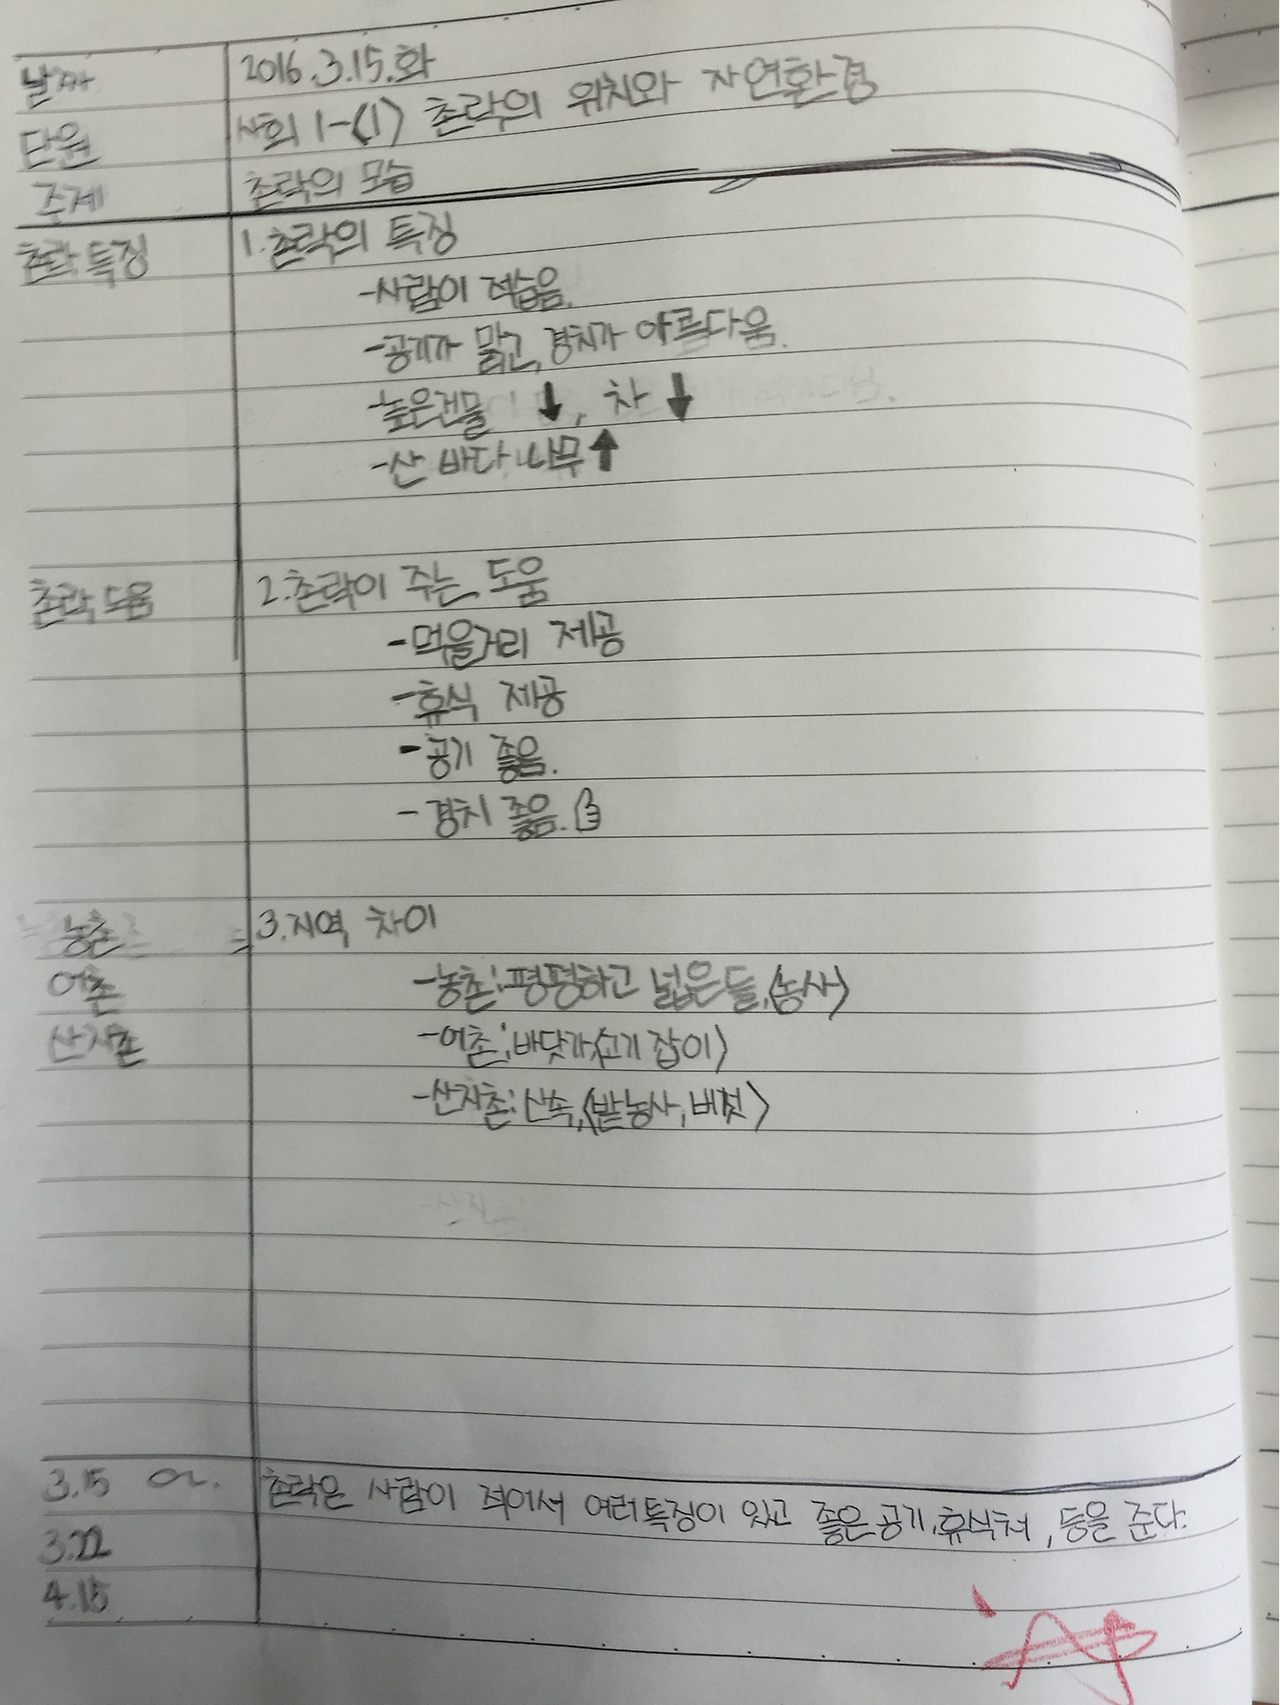 날짜 2016.3.15.화
단원 사회 1-(1) 촌락의 위치와 자연환경
주제 촌락의 모습
촌락 특징 1.촌락의 특징
-사람이 적습음.
-공기가 맑고,경치가 아름다움.
-높은건물 ↓, 차 ↓
-산 바다 나무↑
촌락 도움 2.촌락이 주는 도움
-먹을거리 제공
-휴식 제공
-공기 좋음.
-경치 좋음.
농촌 3.지역 차이
어촌 -농촌:평평하고 넓은 들,<농사>
산지촌 -어촌:바닷가<고기 잡이>
-산지촌:산속,<밭농사,버섯>
3.15 촌락은 사람이 적어서 여러특징이 있고 좋은공기,휴식처,등을 준다.
3.22
4.15